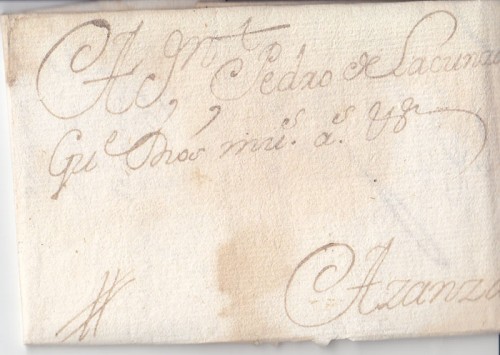 A Jn.t
Pedro de Lacunza
Gu.e Dios m.s a.s
Azanza